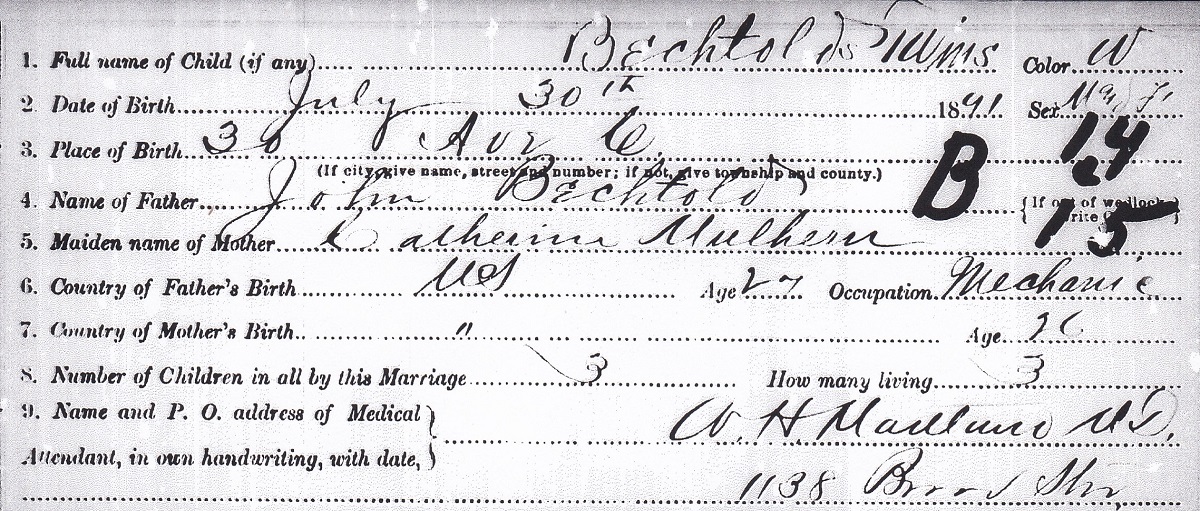 1. Full name of Child (if any) Bechtolds Twins Color W
2. Date of Birth July 30th 1891 Sex M
3. Place of Birth 30 Ave C.
(If city, give name, street and number; if not, give township and county.)
B 14
4. Name of Father John Bechtold {If out of wedlock write
15
5. Maiden name of Mother Catherine Mulhern
6. Country of Father's Birth US Age 27 Occupation Mechanic
7. Country of Mother's Birth " Age 26
8. Number of Children in all by this Marriage 3 How many living 3
9. Name and P. O. address of Medical} W. H M.D.
Attendant, in own handwriting, with date,}
1138 Broad Str,